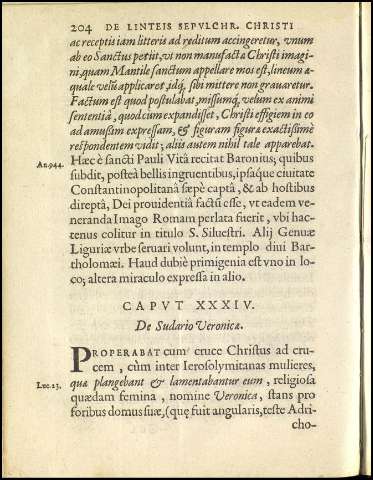 204 DE LINTEIS SEPVLCHR. CHRISTI
ac receptis iam litteris ad reditum accingeretur, vnum
ab eo Sanctus petiit, vt non manufactæ Christi imagi-
ni, quam Mantile sanctum appellare mos est, lineum æ-
quale velũ applicaret, idq́, sibi mittere non grauaretur.
Factum est quod postulabat, missumq́, velum ex animi
sententiâ, quod cum expandisset, Christi effigiem in eo
ad amussim expressam, & figuram figuræ exactißimè
respondentem vidit; alijs autem nihil tale apparebat.
An.944. Hæc è sancti Pauli Vitâ recitat Baronius; quibus
subdit, posteà bellis ingruentibus, ipsaque ciuitate
Constantinopolitanâ sæpè captâ, & ab hostibus
direptâ, Dei prouidentiâ factũ esse, vt eadem ve-
neranda Imago Romam perlata fuerit, vbi hac-
tenus colitur in titulo S. Siluestri. Alij Genuæ
Liguriæ vrbe seruari volunt, in templo diui Bar-
tholomæi. Haud dubiè primigenia est vno in lo-
co; altera miraculo expressa in alio.
CAPVT XXXIV.
De Sudario Veronicæ.
PROPERABAT cum cruce Christus ad cru-
cem, cùm inter Ierosolymitanas mulieres,
Luc.23. quæ plangebant & lamentabantur eum, religiosa
quædam femina, nomine Veronica, stans pro
foribus domus suæ, (quę fuit angularis, teste Adri-
cho-